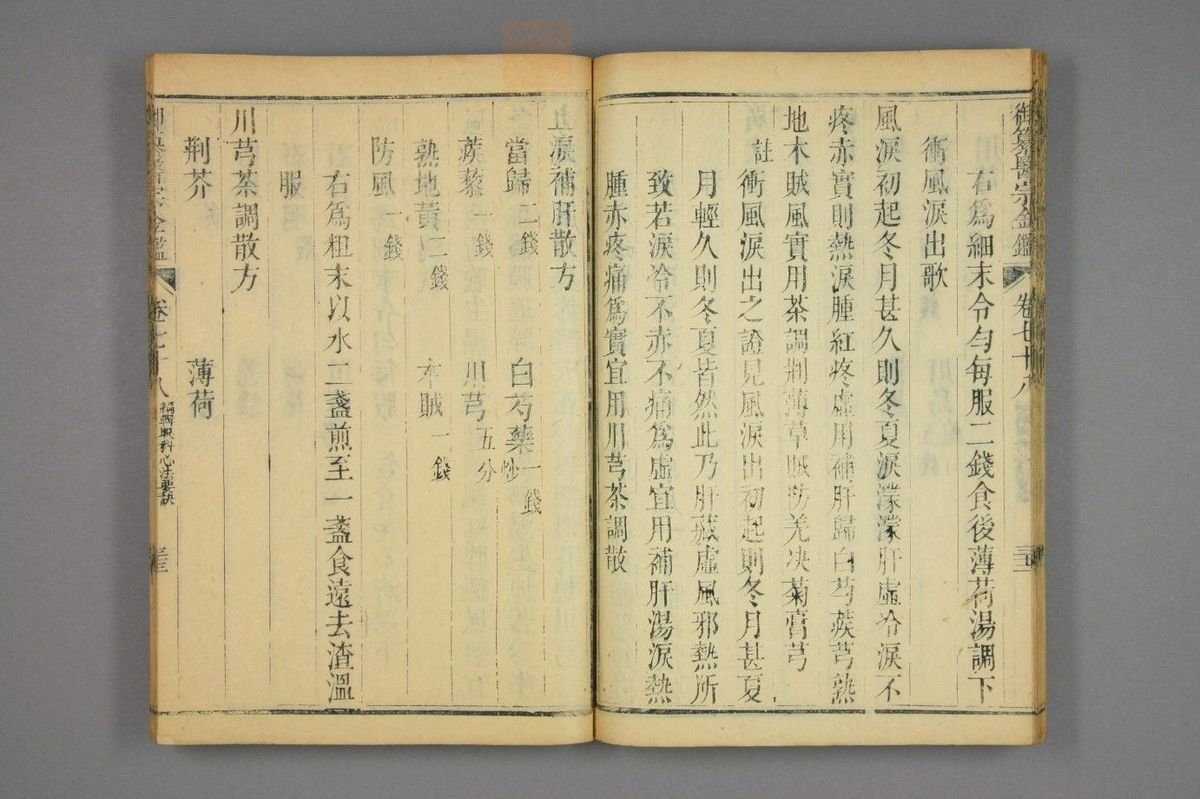 御纂醫宗金鑑 卷七十八
右爲細末令勻每服二錢食後薄荷湯調下
衝風淚出歌
風淚初起冬月甚久則冬夏淚濛濛肝虛冷淚不
疼赤實則熱淚腫紅疼虛用補肝歸白芍蒺芎熟
地木賊風實用茶調荆薄草賊防羌决菊膏芎
註
衝風淚出之證見風淚出初起則冬月甚夏
月輕久則冬夏皆然此乃肝藏虛風邪熱所
致若淚冷不赤不痛爲虛宜用補肝湯淚熱
腫赤疼痛爲實宜用川芎茶調散
止淚補肝散方
當歸二錢 白芍藥炒一錢
蒺藜一錢 川芎五分
熟地黃二錢 木賊一錢
防風一錢
右爲粗末以水二盞煎至一盞食遠去渣溫
服
川芎茶調散方
荆芥 薄荷
宗金鑑 卷七十八 編輯眼科心法要訣